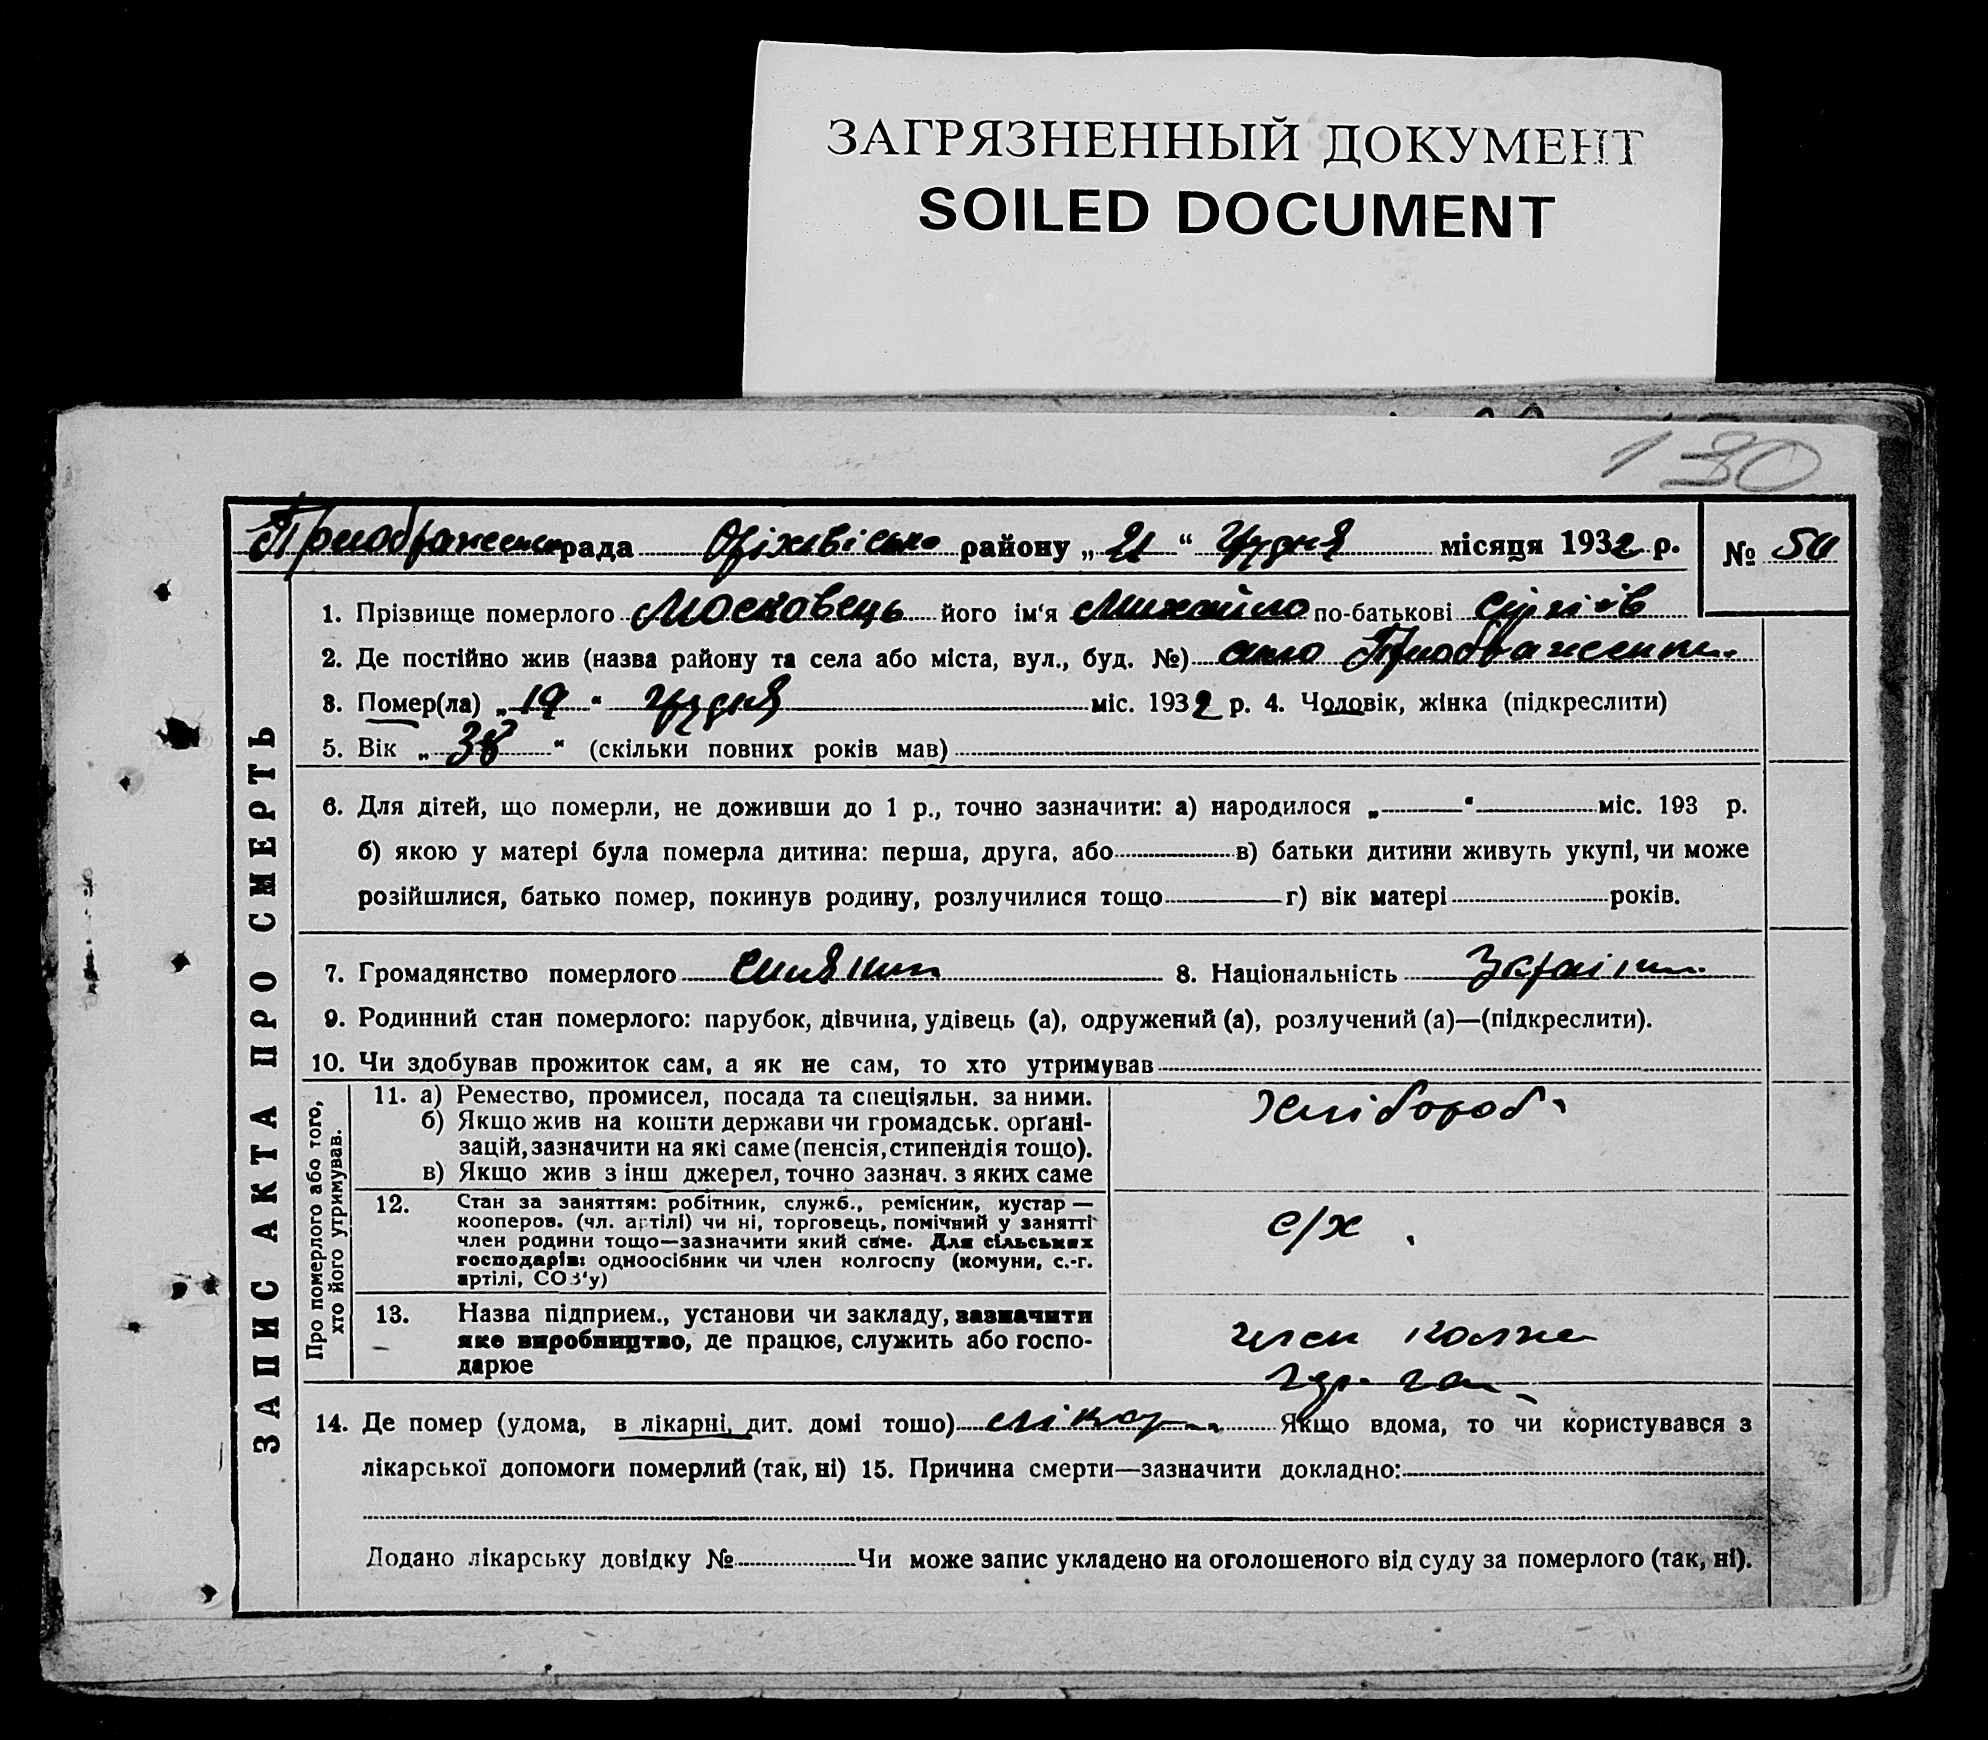 ЗАГРЯЗНЕННЫЙ ДОКУМЕНТ
SOILED DOCUMENT
130
рада Оріхівісько району „ 21 “ грудня місяця 1932 р. № 50
ЗАПИС АКТА ПРО СМЕРТЬ
1. Прізвище померлого Московець його ім‘я Михайло по-батькові Сергіїв
2. Де постійно жив (назва району та села або міста, вул., буд. №) село
3. Помер(ла) „ 19 “ грудня міс. 1932 р. 4. Чоловік, жінка (підкреслити)
5. Вік „ 38 “ (скільки повних років мав)
6. Для дітей, що померли, не доживши до 1 р., точно зазначити: а) народилося „ “ міс. 193 р.
б) якою у матері була померла дитина: перша, друга, або в) батьки дитини живуть укупі, чи може
розійшлися, батько помер, покинув родину, розлучилися тощо г) вік матері років.
7. Громадянство померлого 8. Національність Українн.
9. Родинний стан померлого: парубок, дівчина, удівець (а), одружений (а), розлучений (а)—(підкреслити).
10. Чи здобував прожиток сам, а як не сам, то хто утримував
Про померлого або того,
хто його утримував.
11. а) Ремество, промисел, посада та спеціяльн. за ними. Хлібороб
б) Якщо жив на кошти держави чи громадськ. орґані-
зацій, зазначити на які саме (пенсія, стипендія тощо).
в) Якщо жив з інш джерел, точно зазнач. з яких саме
12. Стан за заняттям: робітник, служб., ремісник, кустар —
кооперов. (чл. артілі) чи ні, торговець, помічний у занятті
член родини тощо—зазначити який саме. Для сільських
господарів: одноосібник чи член колгоспу (комуни, с.-г.
артілі, СОЗ‘у)
с/х .
13. Назва підприєм., установи чи закладу, зазначити
яке виробництво, де працює, служить або госпо-
дарює
член
14. Де помер (удома, в лікарні, дит. домі тощо) Якщо вдома, то чи користувався з
лікарської допомоги померлий (так, ні) 15. Причина смерти—зазначити докладно:
Додано лікарську довідку № Чи може запис укладено на оголошеного від суду за померлого (так, ні).